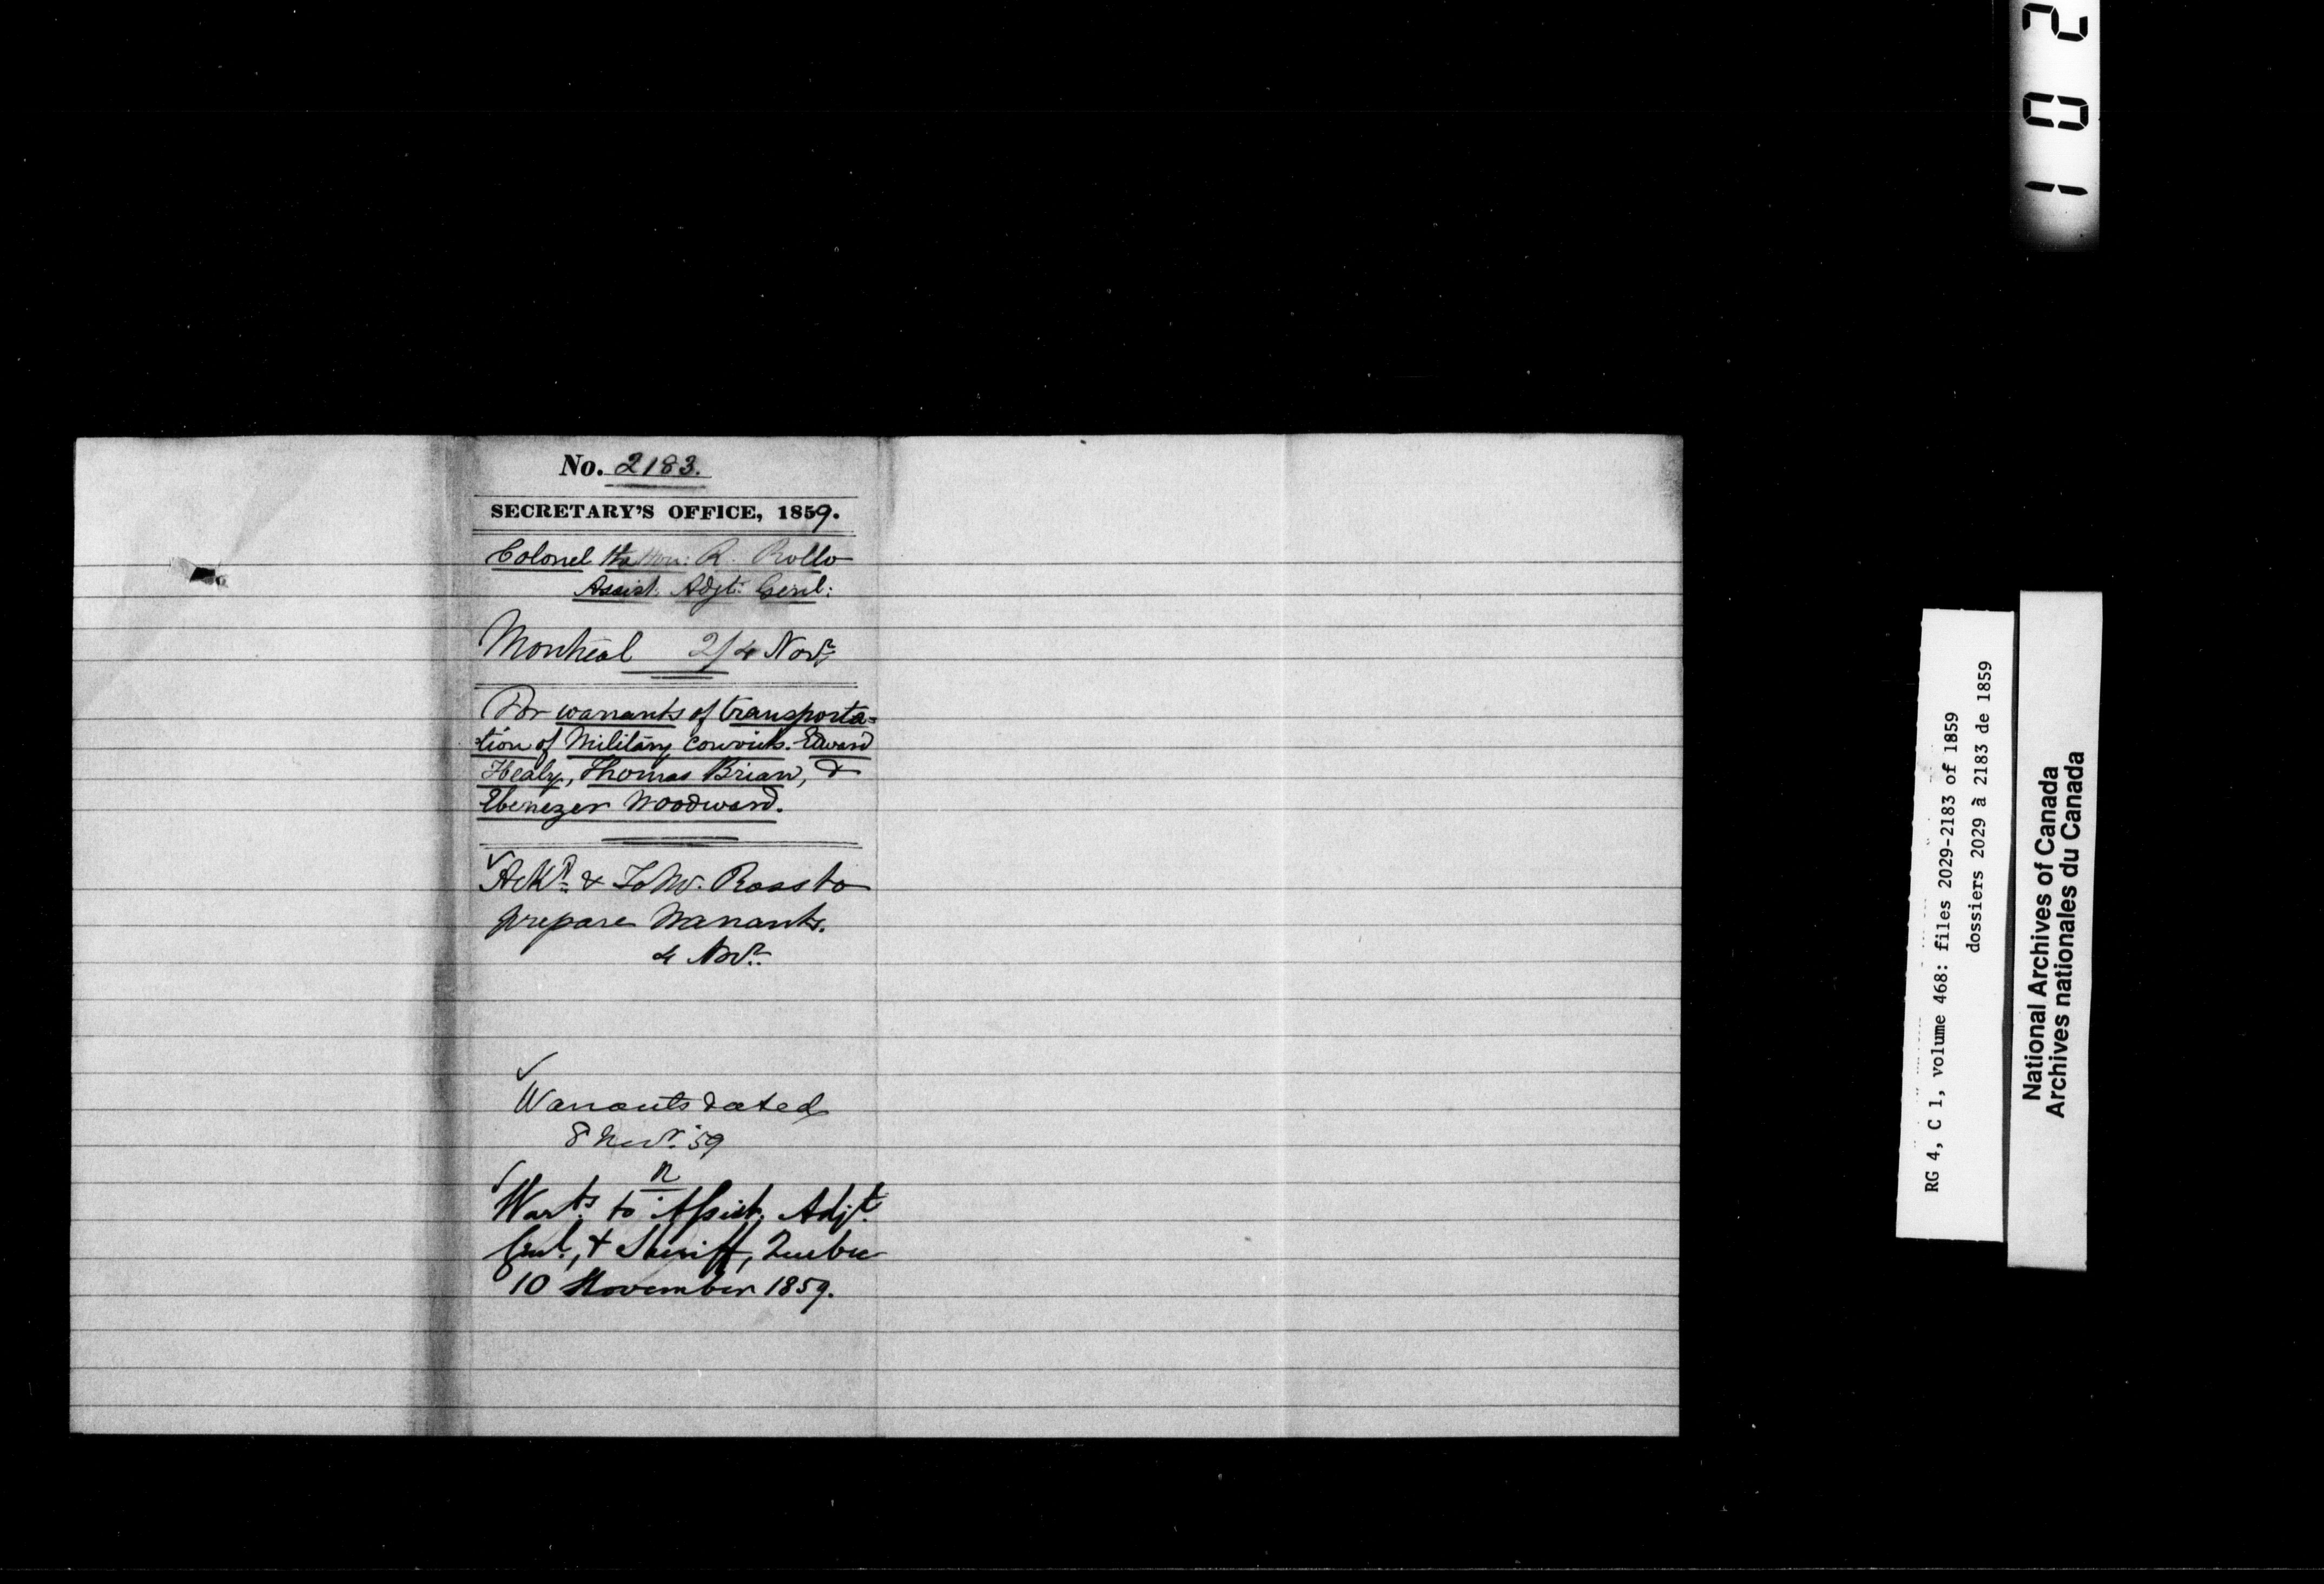 No. 2183.
SECRETARY'S OFFICE, 1859.
Colonel the Hon: R. Rollo
Assist. Adjt. Genl:
Montreal 2/4 Novr
For warrants of transporta=
=tion of Military convicts. Edward
Healy, Thomas Brian, &
Ebenezer Woodward.
Ackd & To Mr. Ross to
prepare Warrants.
4 Novr
Warrants dated
8 Novr. '59
Warts to Assist. Adjt.
Genl., & Sheriff, Quebec
10 November 1859.
102
RG 4, C 1, volume 468: files 2029-2183 of 1859
dossiers 2029 à 2183 de 1859
National Archives of Canada
Archives nationales du Canada